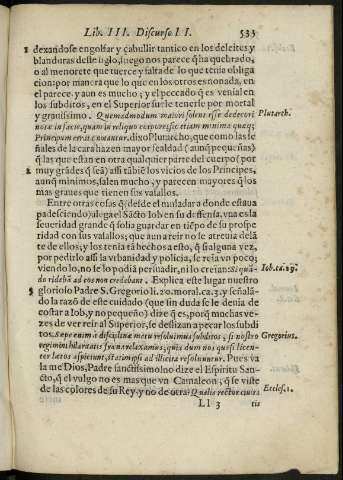 Lib. III. Discurso II. 533
dexandose engolfar y cabullir tantico en los deleites y
blanduras deste siglo, luego nos parece q̃ ha quebrado,
o al menor ete que tuerce y falta de lo que tenia obliga
cion: por manera que lo que en los otros es nonada, en
el parece y aun es mucho; y el peccado que es venial en
los subditos, en el Superior suele tenerse por mortal
y grauissimo. Quemadmodum maiori solent esse dedecori
Plutarch.
næui in facie, quam in reliquo corpore: sic etiam minima quæq;
Principum errata dixo Plutarcho, que como las se
ñales de la cara hazen mayor fealdad (aunq̃ pequeñas)
q̃ las que estan en otra qualquier parte del cuerpo (por
muy grãdes q̃ seã) assi tãbiẽ los vicios de los Principes,
aunq̃ minimos, salen mucho, y parecen mayores q̃ los
mas graues que tienen sus vasallos.
Entre otras cosas q̃ (desde el muladar a donde estaua
padesciendo) alega el Sãcto Iob en su deffensa, vna es la
seueridad grande q̃ solia guardar en tiẽpo de su prospe
ridad con sus vasallos; que aun a reir no se atreuia delã
te de ellos; y los tenia tã hechos a esto, q̃ si alguna vez,
por pedirlo assi la vrbanidad y policia, se reia vn poco;
viendo lo, no se lo podia persuadir, ni lo creian: Si quã-
Iob. ca. 29.
do ridebã ad eos non credebant. Explica este lugar nuestro
glorioso Padre S. Gregorio li. 20. moral. ca. 3. y señalã-
do la razõ de este cuidado (que sin duda se le deuia de
costar a Iob, y no pequeño) dize q̃ es, porq̃ muchas ve-
zes de ver reir al Superior, se deslizan a pecar los subdi
tos. Sæpe enim à disciplinæ metu resoluimus subditos, si nostro
Gregorius.
regimini hilaritatis fræna relaxamus, quia dum nos quasi licen-
ter lætos aspiciunt, ad illicita resoluuntur. Pues va
la me Dios, Padre sanctissimo no dize el Espiritu San-
cto, q̃ el vulgo no es mas que vn Camaleon, q̃ se viste
de las colores de su Rey, y no de otra: Qualis rector ciuita
Eccles. 1.
Ll 3 tis